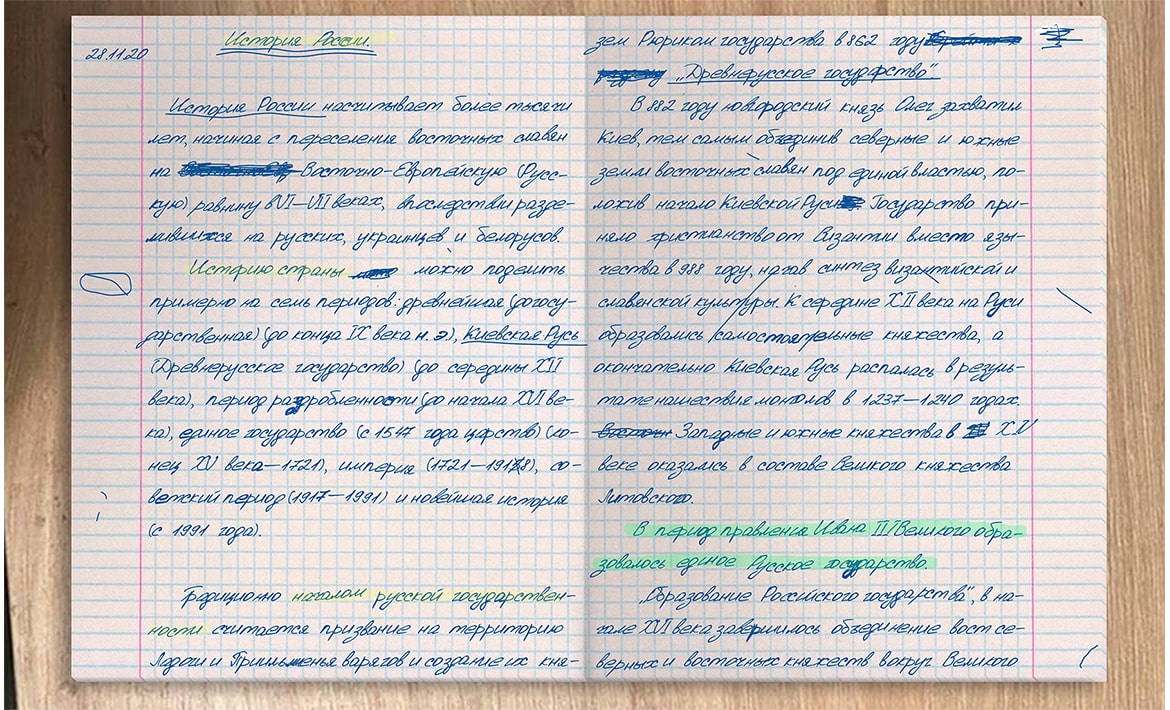 История России.
28.11.20
История России насчитывает более тысячи
лет, начиная с переселения восточных славян
на Восточно-Европейскую (Русс-
кую) равнину в VI–VII веках, впоследствии разде-
лившихся на русских, украинцев и белорусов.
Историю страны можно поделить
примерно на семь периодов: древнейшая (догосу-
дарственная) (до конца IX века н. э.), Киевская Русь
(Древнерусское государство) (до середины XII
века), период раздробленности (до начала XVI ве-
ка), единое государство (с 1547 года царство) (ко-
нец XV века–1721), империя (1721–1918), со-
ветский период (1917–1991) и новейшая история
(с 1991 года).
Традиционно началом русской государствен-
ности считается призвание на территорию
Ладоги и Приильменья варягов и создание их кня-
зем Рюриком государства в 862 году
„Древнерусское государство".
В 882 году новгородский князь Олег захватил
Киев, тем самым объединив северные и южные
земли восточных славян под единой властью, по-
ложив начало Киевской Руси Государство при-
няло христианство от Византии вместо язы-
чества в 988 году, начав синтез византийской и
славенской культуры. К середине XII века на Руси
образовались самостоятельные княжества, а
окончательно Киевская Русь распалась в резуль-
тате нашествия монголов в 1237–1240 годах.
Западные и южные княжества в XIV
веке оказались в составе Великого княжества
Литовского.
В период правления Ивана III Великого обра-
зовалось единое Русское государство.
„Образование Российского государства", в на-
чале XVI века завершилось объединение вост се-
верных и восточных княжеств вокруг Великого